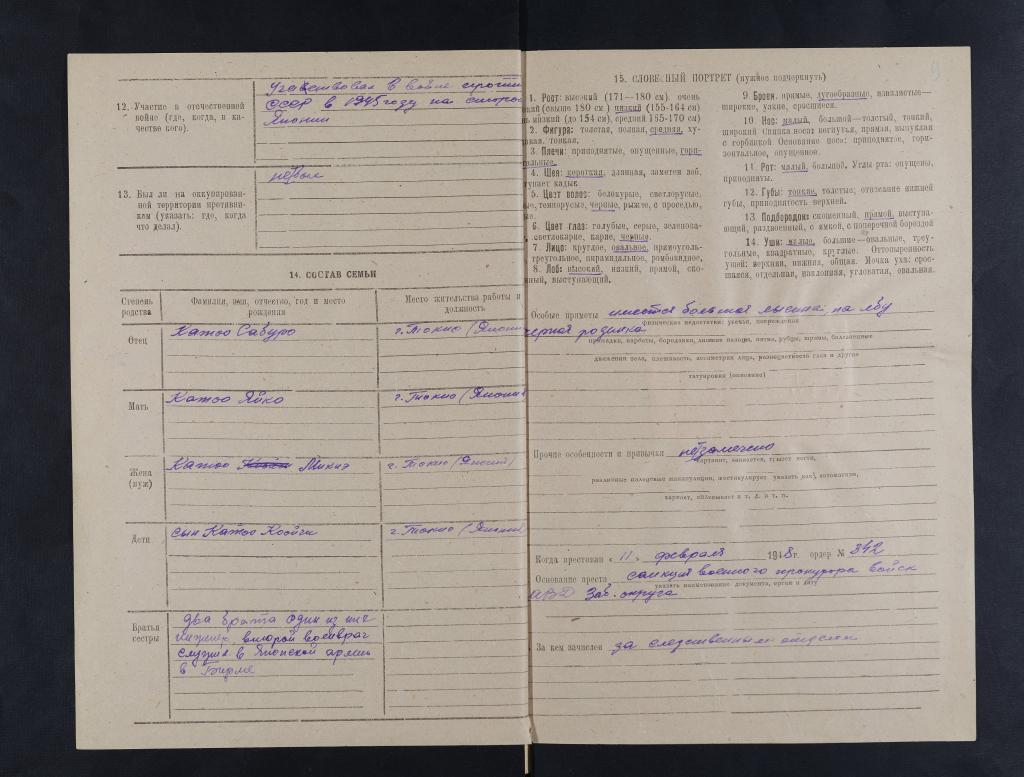 12. Участие в отечественной
войне (где, когда, и ка-
честве кого).
Участвовал в войне против
СССР в 1945 году на стороне
Японии
13. Был ли на оккупирован-
ной территории противни-
ком (указать: где, когда
что делал).
не был
14. СОСТАВ СЕМЬИ
Степень
родства
Фамилия, имя, отчество, год и место
рождения
Место жительства работы и
должность
Отец
Катоо Сабуро
г. Токио (Япони
Мать
Катоо Яйко
г. Токио (Япони
Жена
(муж)
Катоо Микиэ
г. Токио (Япония)
Дети
сын Катоо Коойчи
г. Токио (Япони
Братья
сестры
два брата один из них
второй военврач
служил в Японской армии
в Бирме
15. СЛОВЕСНЫЙ ПОРТРЕТ (нужное подчеркнуть)
1. Рост: высокий (171—180 см). очень
кий (свыше 180 см ) низкий (155-164 см)
нь низкий (до 154 см), средний 165-170 см)
2. Фигура: толстая, полная, средняя, ху-
тонкая.
3. Плечи: приподнятые, опущенные, гори-
4. Шея: короткая, длинная, заметен зоб,
тупает кадык
5. Цвет волос: белокурые, светлорусые,
ые, темнорусые, черные, рыжие, с проседью,
ые.
6. Цвет глаз: голубые, серые, зеленова-
светлокарие, карие, черные.
7. Лицо: круглое, овальное, прямоуголь-
треугольное, пирамидальное, ромбовидное,
8. Лоб: высокий, низкий, прямой, ско-
нный, выступающий.
9 Брови: прямые, дугообразные, извилистые—
широкие, узкие, сросшиеся.
10. Нос: малый, большой—толстый, тонкий,
широкий Спинка носа: вогнутая, прямая, выпуклая
с горбинкой Основание носа: приподнятое, гори-
зонтальное, опущенное.
11. Рот: малый, большой. Углы рта: опущены,
приподняты.
12. Губы: тонкие, толстые; отвисание нижней
губы, приподнятость верхней.
13. Подбородок: скошенный, прямой, выступа-
ющий, раздвоенный, с ямкой, с поперечной бороздой
14. Уши: малые, большие—овальные, треу-
гольные, квадратные, круглые. Оттопыренность
ушей: верхняя, нижняя, общая. Мочка уха: срос-
шаяся, отдельная, наклонная, угловатая, овальная.
Особые приметы имеется большая лысина на лбу
физические недостатки: увечья, повреждения
черная родинка
припадки, наросты, бородавки, лишние пальцы, пятна, рубцы, шрамы, болезненные
движения тела, плешивость, асимметрия лица, разноцветность глаз и другое
татуировка (описание)
Прочие особенности и привычки не замечено
картавит, заикается, грызет ногти,
различные пальцевые манипуляции, жестикулирует указать как),
каркает, сплевывает и т. д. и т. п.
Когда арестован « 11 » февраля 1948 г. ордер № 342
Основание ареста санкция военного прокурора войск
указать наименование документа, орган и дату
МВД Заб. округа
За кем зачислен за следственным отделом